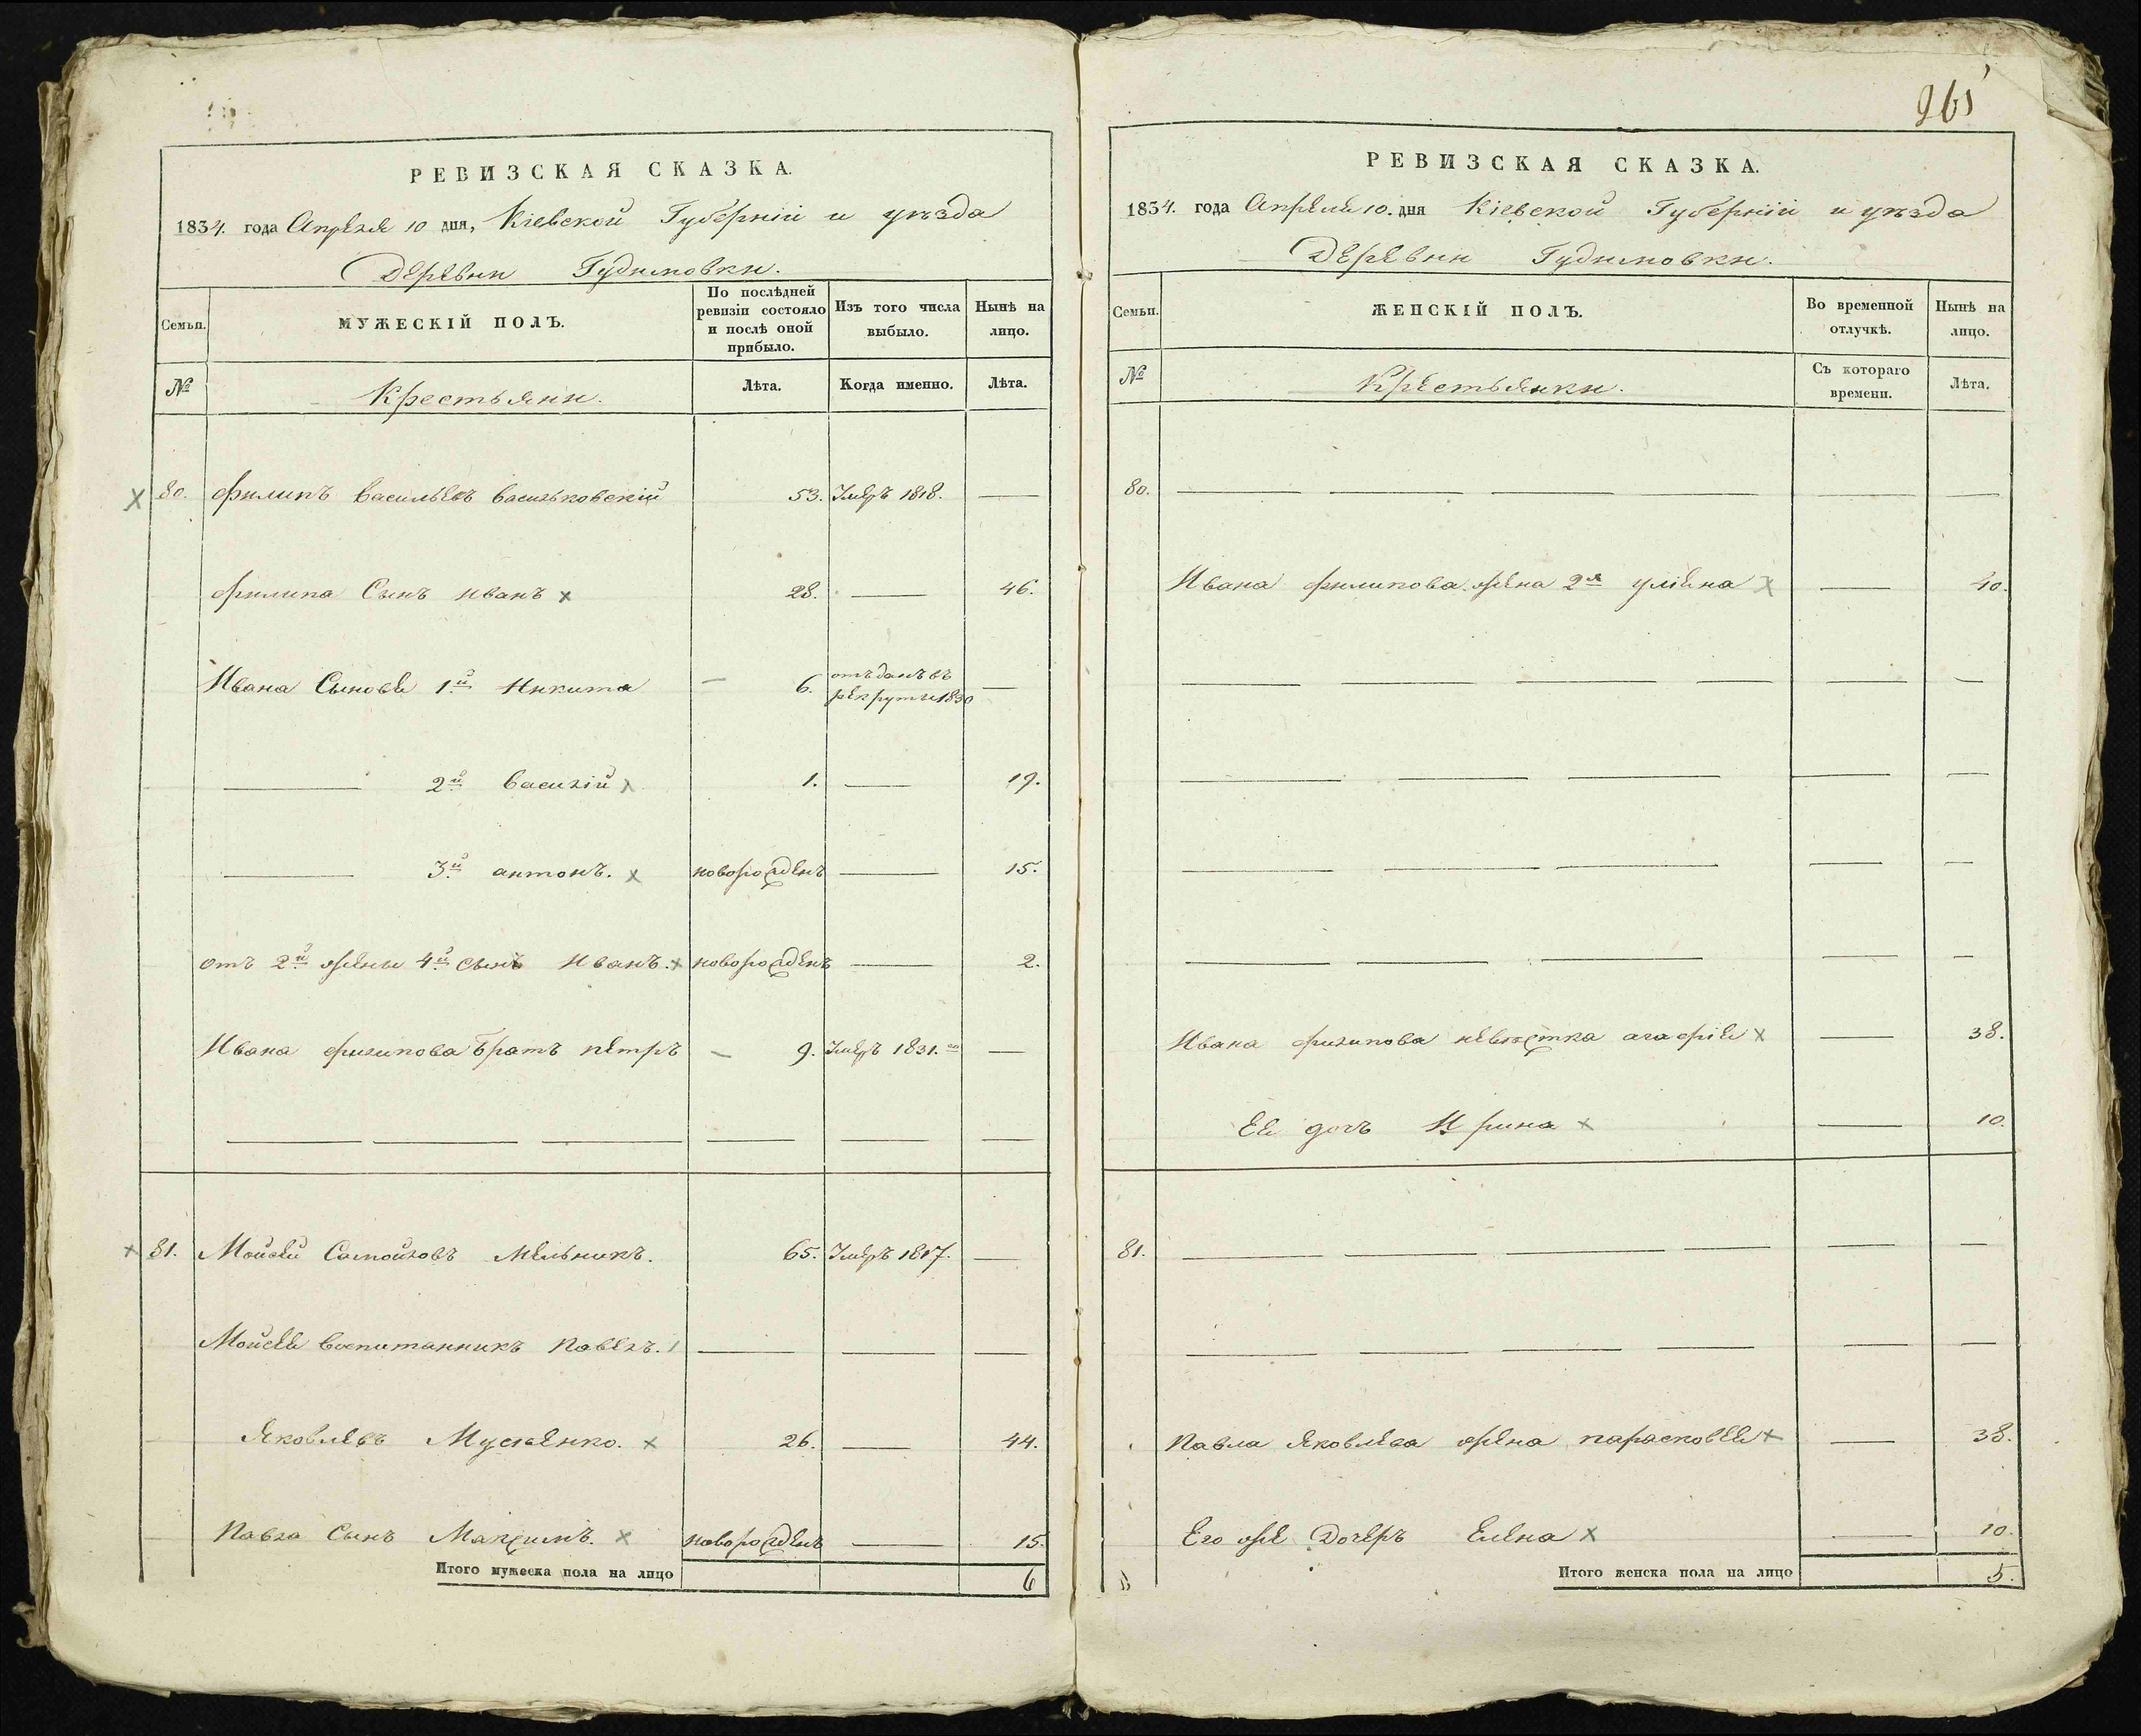 961
РЕВИЗСКАЯ СКАЗКА.
1834. года Апреля 10 дня, Кіевской Губерніи и уѣзда
Деревни Гудимовки.
Семьи.
МУЖЕСКІЙ ПОЛЪ.
По послѣдней ревизіи состояло и послѣ оной прибыло.
Изъ того числа выбыло.
Нынѣ на лицо.
№
Крестьяни.
Лѣта.
Когда именно.
Лѣта.
80. Филипъ Васильевъ Васильковскій 53. Умеръ 1818. —
Филипа Сынъ Иванъ х 28. — 46.
Ивана Сыновья 1й Никита — 6. отъданъ въ рекруты 1830 —
— 2й Василій х 1. — 19.
— 3й антонъ. х новорожденъ — 15.
отъ 2й жены 4й сынъ Иванъ. х новорожденъ — 2.
Ивана филипова Братъ петръ — 9. Умеръ 1831. —
81. Мойсей Самойловъ Мельникъ. 65. Умеръ 1817. —
Мойсея воспитанникъ Павелъ. — — —
Яковлевъ Мусіенко. х 26. — 44.
Павла Сынъ Максимъ. х новорожденъ — 15.
Итого мужеска пола на лицо 6
РЕВИЗСКАЯ СКАЗКА.
1834. года Апреля 10. дня Кіевской Губерніи и уѣзда
Деревни Гудимовки.
Семьи.
ЖЕНСКІЙ ПОЛЪ.
Во временной отлучкѣ.
Нынѣ на лицо.
№
Крестьянки.
Съ котораго времени.
Лѣта.
80. — — — — — —
Ивана филипова жена 2я уліяна х — 40.
Ивана филипова невѣстка агафія х — 38.
Ея дочъ Ирина х — 10.
81. — — — — — —
Павла Яковлева жена парасковея х — 38.
Его же Дочеръ Елена х — 10.
Итого женска пола на лицо 5.